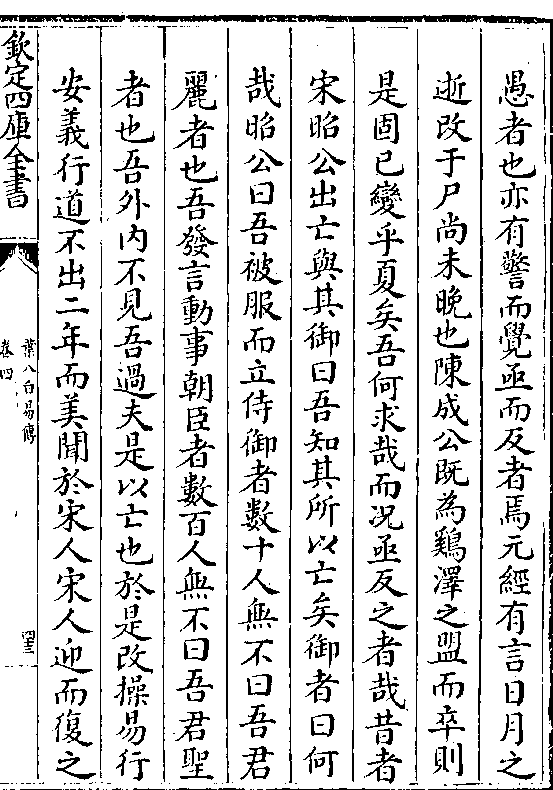 愚者也亦有警而覺亟而反者焉元經有言日月之
逝改于尸尚未晚也陳成公既為鷄澤之盟而卒則
是固已變乎夏矣吾何求哉而况亟反之者哉昔者
宋昭公出亡與其御曰吾知其所以亡矣御者曰何
哉昭公曰吾被服而立侍御者數十人無不曰吾君
麗者也吾發言動事朝臣者數百人無不曰吾君聖
者也吾外内不見吾過夫是以亡也於是改操易行
安義行道不出二年而美聞於宋人宋人迎而復之
欽定四庫全書
葉八白易傳
卷四